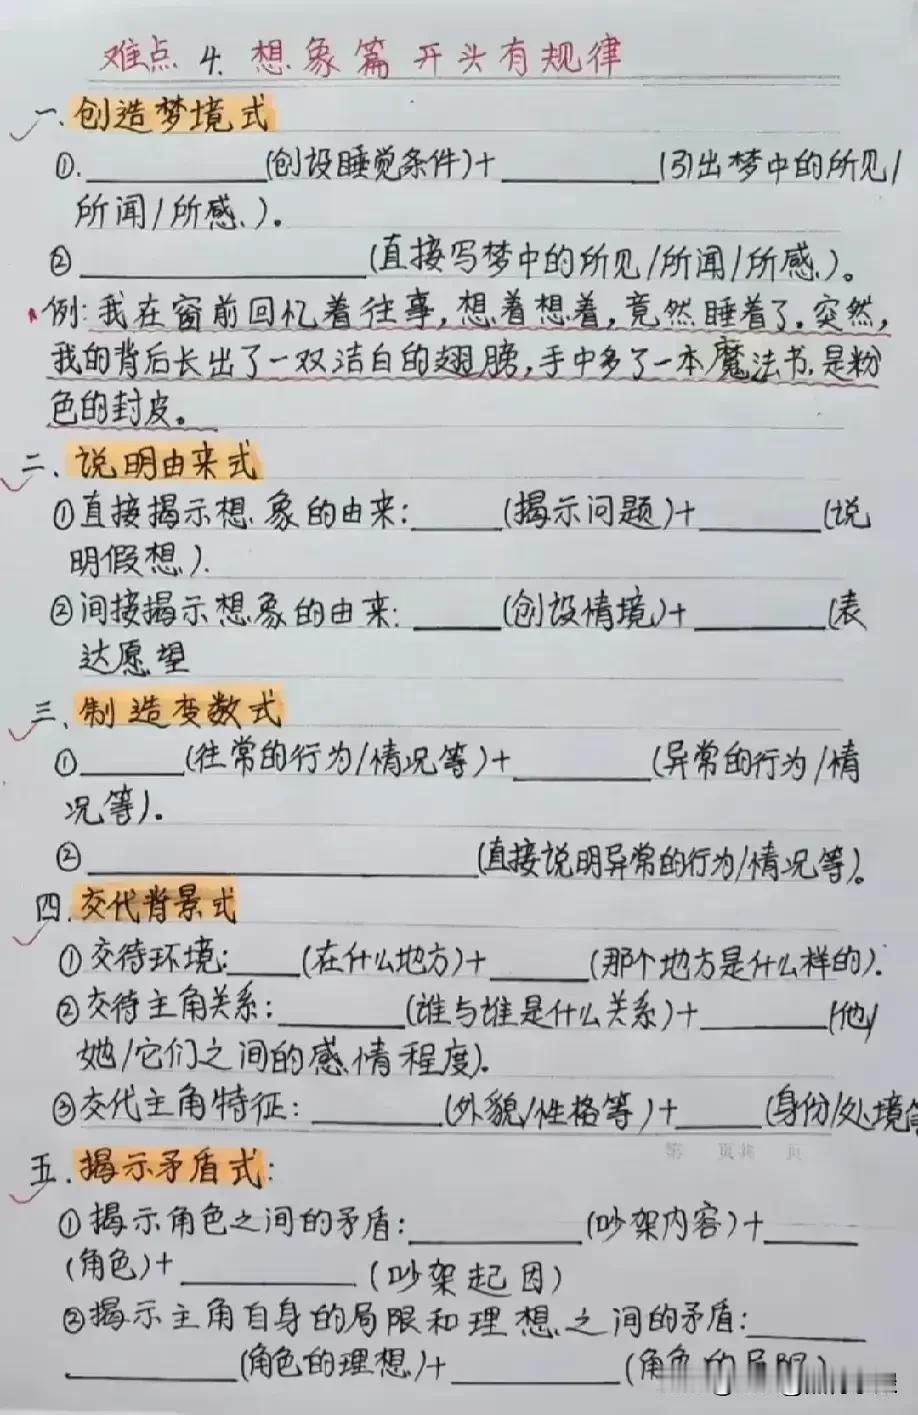 难点4.想象篇开头有规律
一.创造梦境式
①.________(创设睡觉条件)+________(引出梦中的所见/
所闻/所感.)。
②____________(直接写梦中的所见/所闻/所感.)。
例:我在窗前回忆着往事,想着想着,竟然睡着了.突然,
我的背后长出了一双洁白的翅膀,手中多了一本魔法书.是粉
色的封皮。
二.说明由来式
①直接揭示想象的由来:____(揭示问题)+_____(说
明假想).
②间接揭示想象的由来:____(创设情境)+______(表
达愿望
三.制造变数式
①_____(往常的行为/情况等)+______(异常的行为/情
况等)。
②________________(直接说明异常的行为/情况等)。
四.交代背景式
①交待环境:___(在什么地方)+____(那个地方是什么样的).
②交待主角关系:______(谁与谁是什么关系)+_____(他/
她/它们之间的感情程度).
③交代主角特征:_____(外貌/性格等)+___(身份/处境等
第 页共 页
五.揭示矛盾式:
①揭示角色之间的矛盾:_______(吵架内容)+____
(角色)+_______(吵架起因)
②揭示主角自身的局限和理想之间的矛盾:_____
_______(角色的理想)+_______(角色的局限)